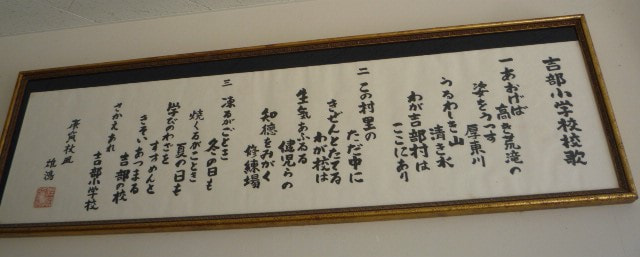 吉部小学校校歌
一 あおげば 高き荒滝の
姿をうつす 厚東川
うるわしき山 清き水
わが吉部村は ここにあり
二 この村里の ただ中に
きぜんとたてる わが校は
生気あふるる 健児らの
知徳をみがく 修練場
三 凍るがごとき 冬の日も
焼くるがごとき 夏の日も
学びのわざを すすめんと
きそいあつまる 吉部の校
さかえあれ 吉部小学校
庚戌秋